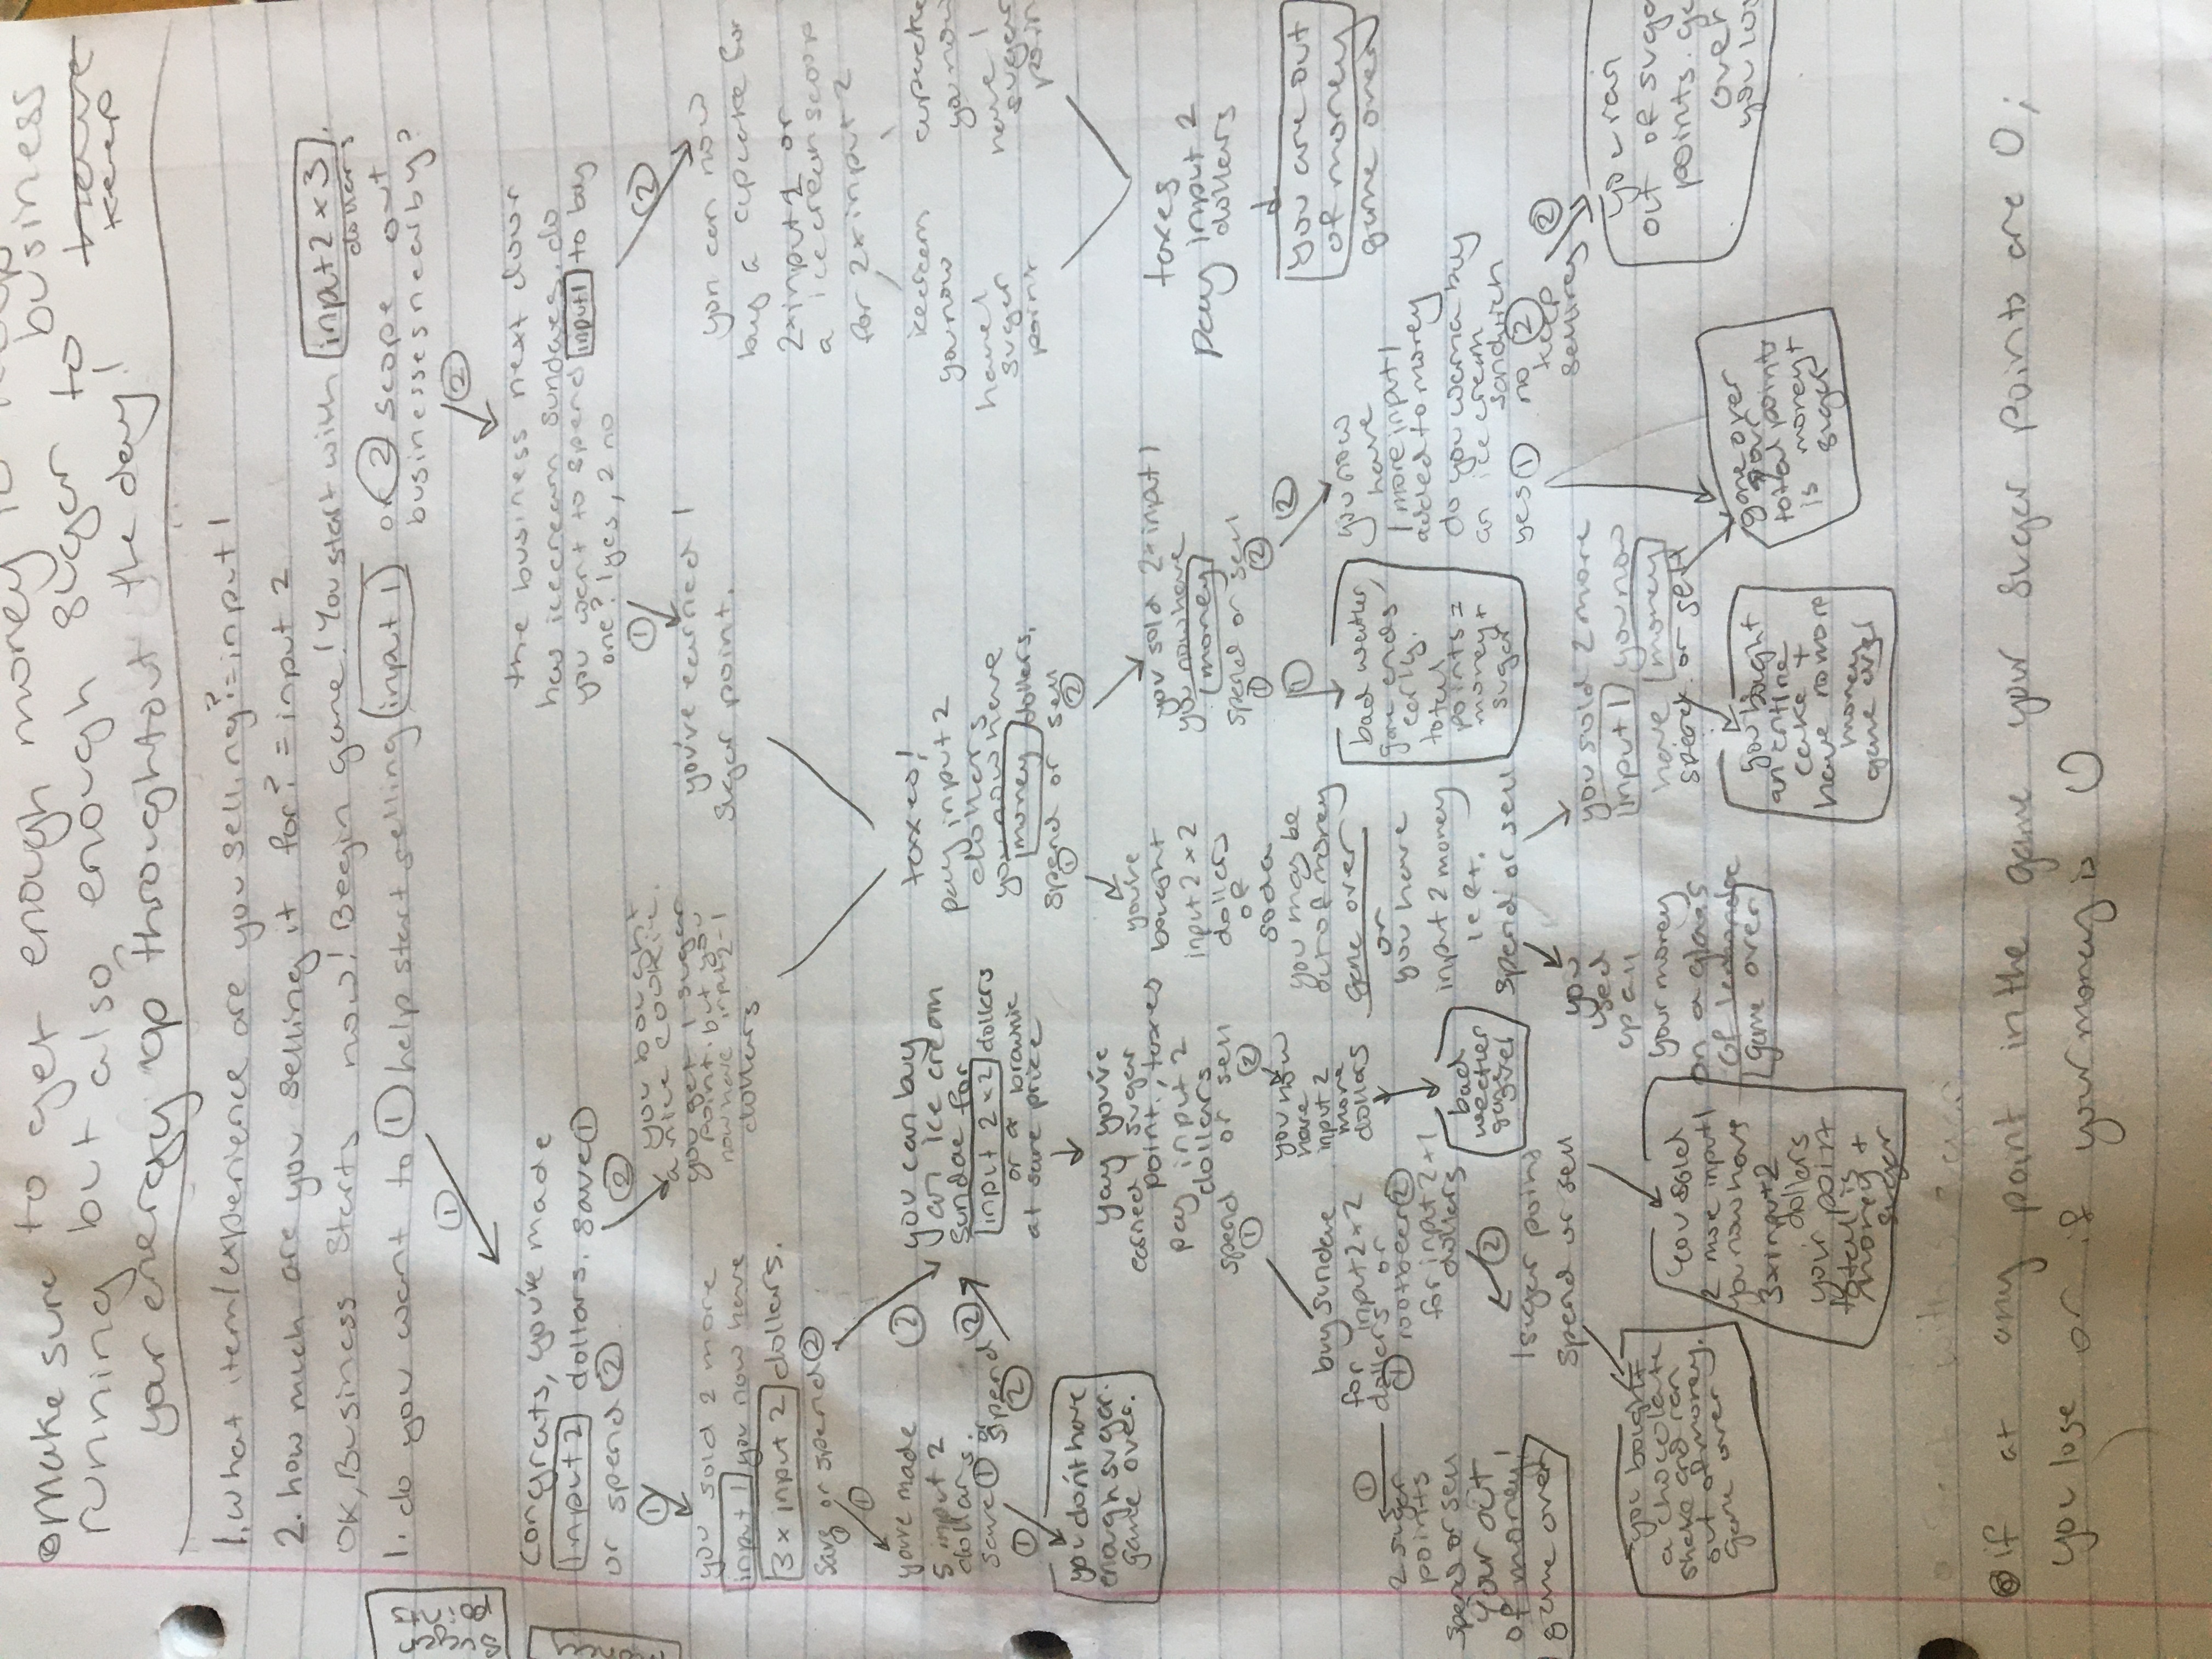 Make sure to get enough money to keep business
running but also, enough sugar to have keep
your energy up throughtout the day!
1. What item/experience are you selling? = input 1
2. how much are you selling it for? = input 2
OK, Business starts now! Begin game! You start with input 2 x 3
dollars
1. do you want to ① help start selling input 1 or ② scope out
businesses nearby?
sugar
points
money
①
②
congrats, you've made
input 2 dollars. save ①
or spend ②
①
②
you bought
a nice cookie.
you get 1 sugar
point. but you
now have input 2-1
dollars
you sold 2 more
input 1 you now have
3 x input 2 dollars.
save or spend ②
①
①
you've made
5 input 2
dollars.
save ① or
spend
②
②
②
①
you don't have
enough sugar.
game over.
you can buy
an ice cream
sundae for
input 2 x 2 dollars
or a brownie
at same price
yay you've
earned 1 sugar
point., taxes
pay input 2
dollars
spend or sell
① ②
buy sundae
for input 2 x 2
dollars or
① rootbeer ②
for input 2 + 1
dollars
①
2 sugar
points
spend or sell
your out
of money!
game over
②
1 sugar point
spend or sell
you bought
a chocolate
shake and ran
out of money.
game over
you sold
2 more input 1
you now have
3 x input 2
dollars
your point
total is
money +
sugar
you now
have
input 2
more
dollars
bad
weather
game
over
the business next door
has icecream sundaes. do
you want to spend input 1 to buy
one? 1 yes, 2 no
①
②
you've earned 1
sugar point.
taxes!
pay input 2
dollars
you now have
money dollars.
spend or sell
① ②
you've
bought
input 2 x 2
dollars
of
soda
you may be
out of money
game over
or
you have
input 2 money
left.
spend or sell
you
used
up all
your money
on a glass
of lemonade
game over
you sold 2 more
input 1 you now
have money
spend or sell
you bought
an entire
cake +
have no more
money
game over
you sold 2 x input 1
you now have
money
spend or sell
① ②
①
bad weather,
game ends
early.
total
points =
money +
sugar
②
you now
have
1 more input 1
added to money
do you wanna buy
an ice cream
sandwich
yes ① no ②
keep
selling
②
game over
your
total points
is money +
sugar
you ran
out of suga
points. ga
over
you los
you can now
buy a cupcake for
2 x input 2 or
a icecream scoop
for 2 x input 2
icecream
you now
have 1
sugar
point
cupcake
you now
have 1
sugar
poin
taxes
pay input 2
dollars
you are out
of money
game over
if at any point in the game your sugar points are 0;
you lose or if your money is 0